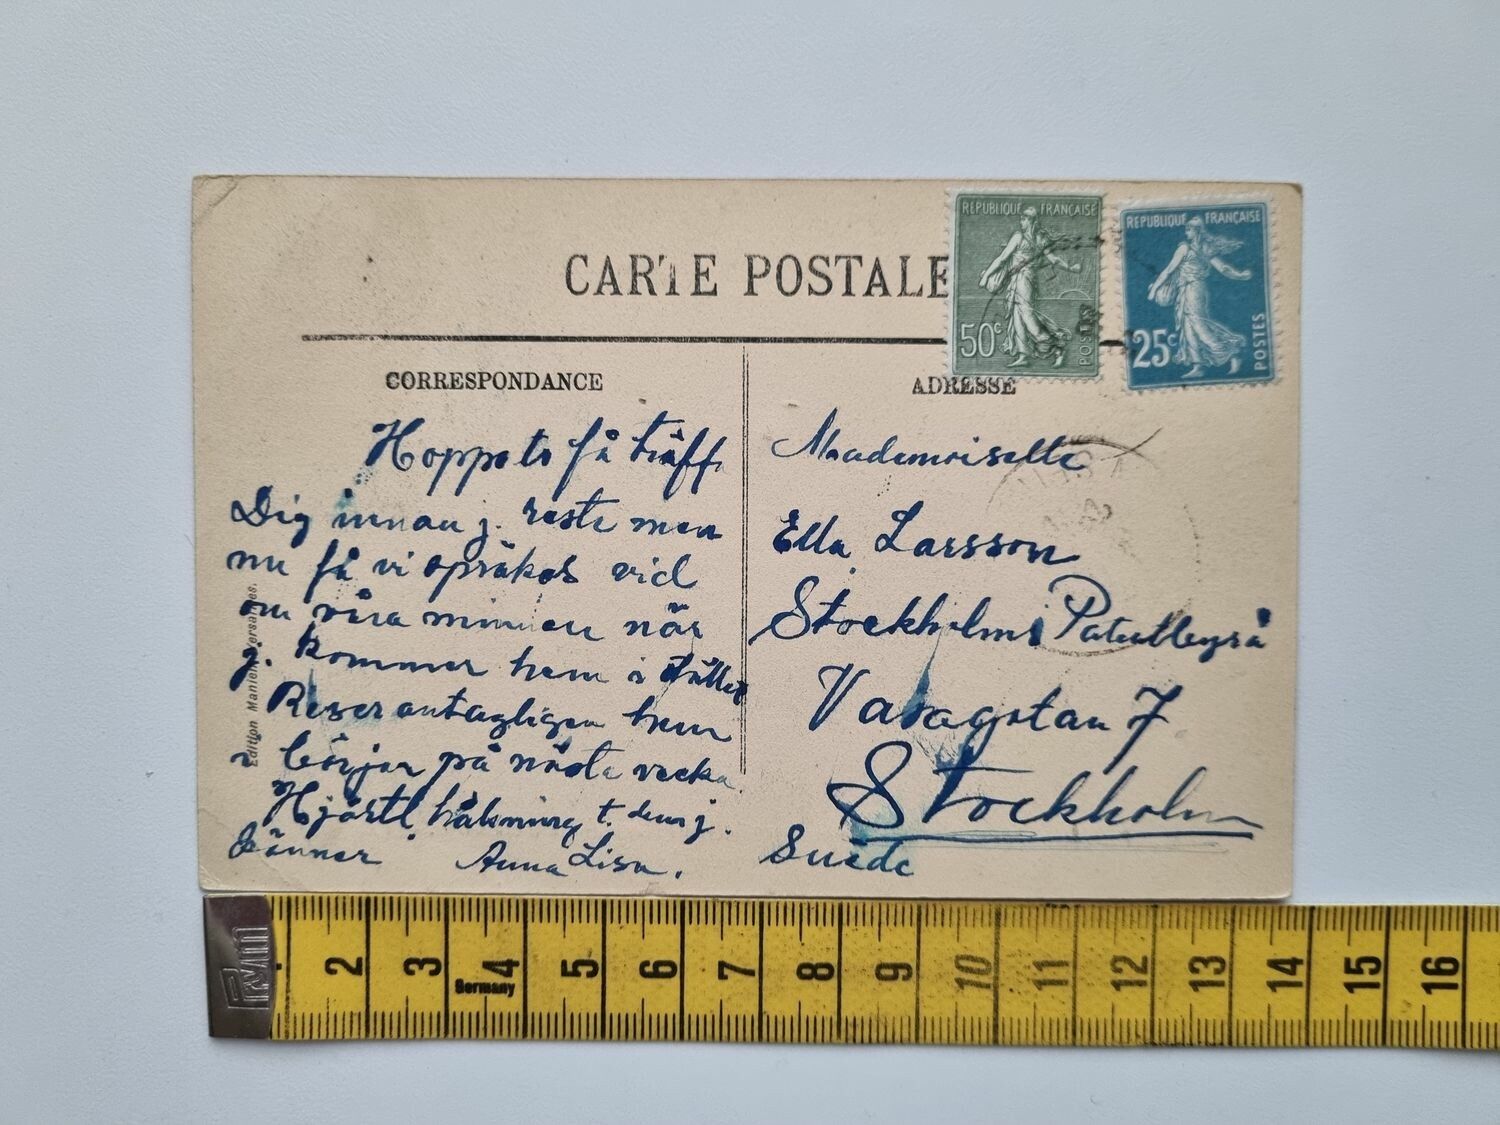 CARTE POSTALE
REPUBLIQUE FRANÇAISE
50c
POSTES
REPUBLIQUE FRANÇAISE
25c
POSTES
CORRESPONDANCE
Hoppats få träff.
Dig innan j. reste men
nu få vi språkas vid
om våra minnen när
j. kommer hem i stället
Reser antagligen hem
i början på nästa vecka
Hjärtl. hälsning t. dem j.
känner Anna Lisa.
Edition Maniel, Versailles.
ADRESSE
Mademoiselle
Ella Larsson
Stockholms Patentbyrå
Vasagatan 7
Stockholm
Suède
PWM
2 3 4 5 6 7 8 9 10 11 12 13 14 15 16
Germany